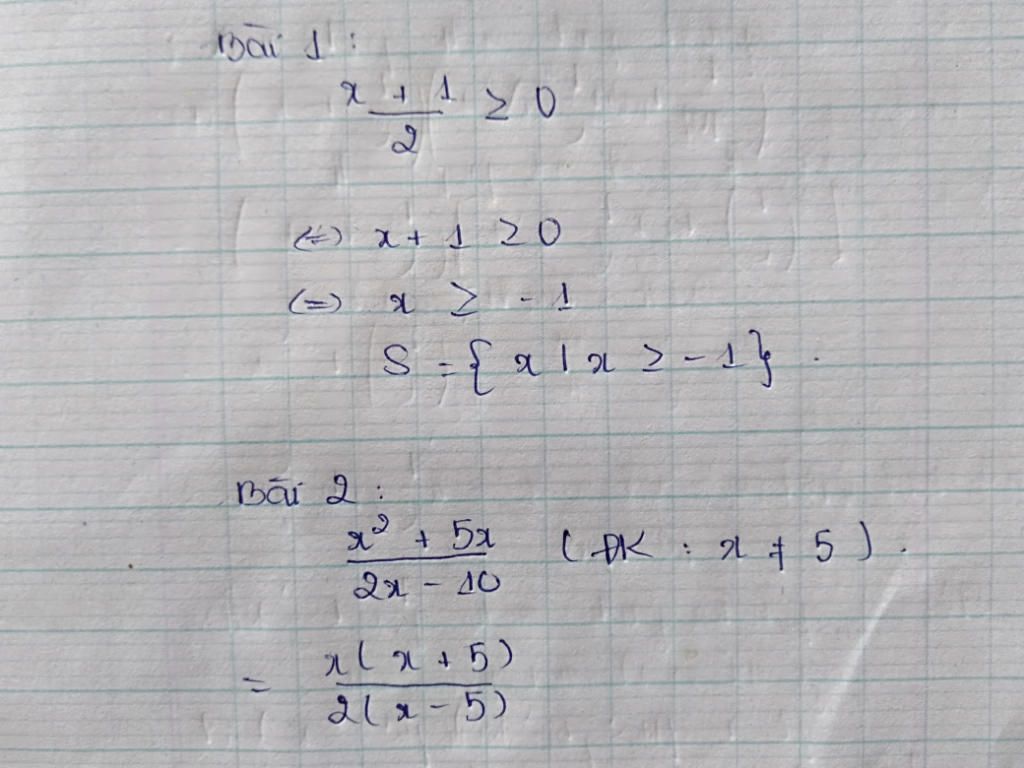 Bài 1 :
x + 1 / 2 ≥ 0
(=) x + 1 ≥ 0
(=) x ≥ - 1
S = { x | x ≥ - 1 } .
Bài 2 :
x² + 5x / 2x - 10 ( ĐK : x ≠ 5 ) .
= x ( x + 5 ) / 2 ( x - 5 )